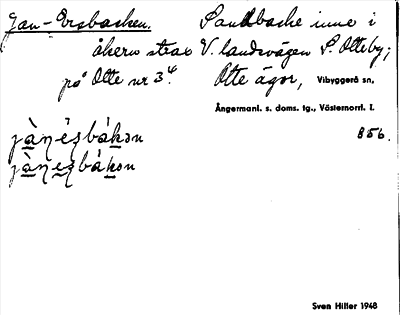 Jan-Ersbacken. Sandbacke inne i
åkern strax V. landsvägen S. Otteby;
på Otte nr 3⁴. Otte ägor, Vibyggerå sn,
Ångermanl. s. doms. tg., Västernorrl. l.
856.
Sven Hiller 1948